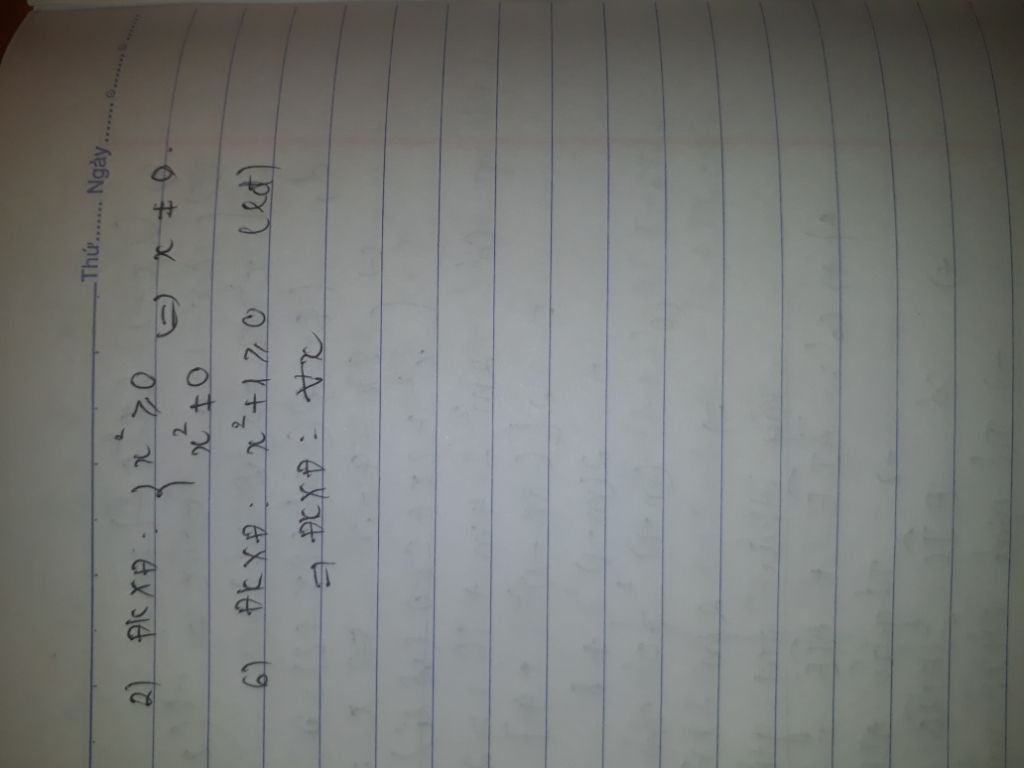 Thứ:....... Ngày .........o.........o.....
2) ĐKXĐ: { x² ≥ 0
x² ≠ 0 ⇔ x ≠ 0.
6) ĐKXĐ: x² + 1 ≥ 0 (lđ)
⇒ ĐKXĐ: ∀x